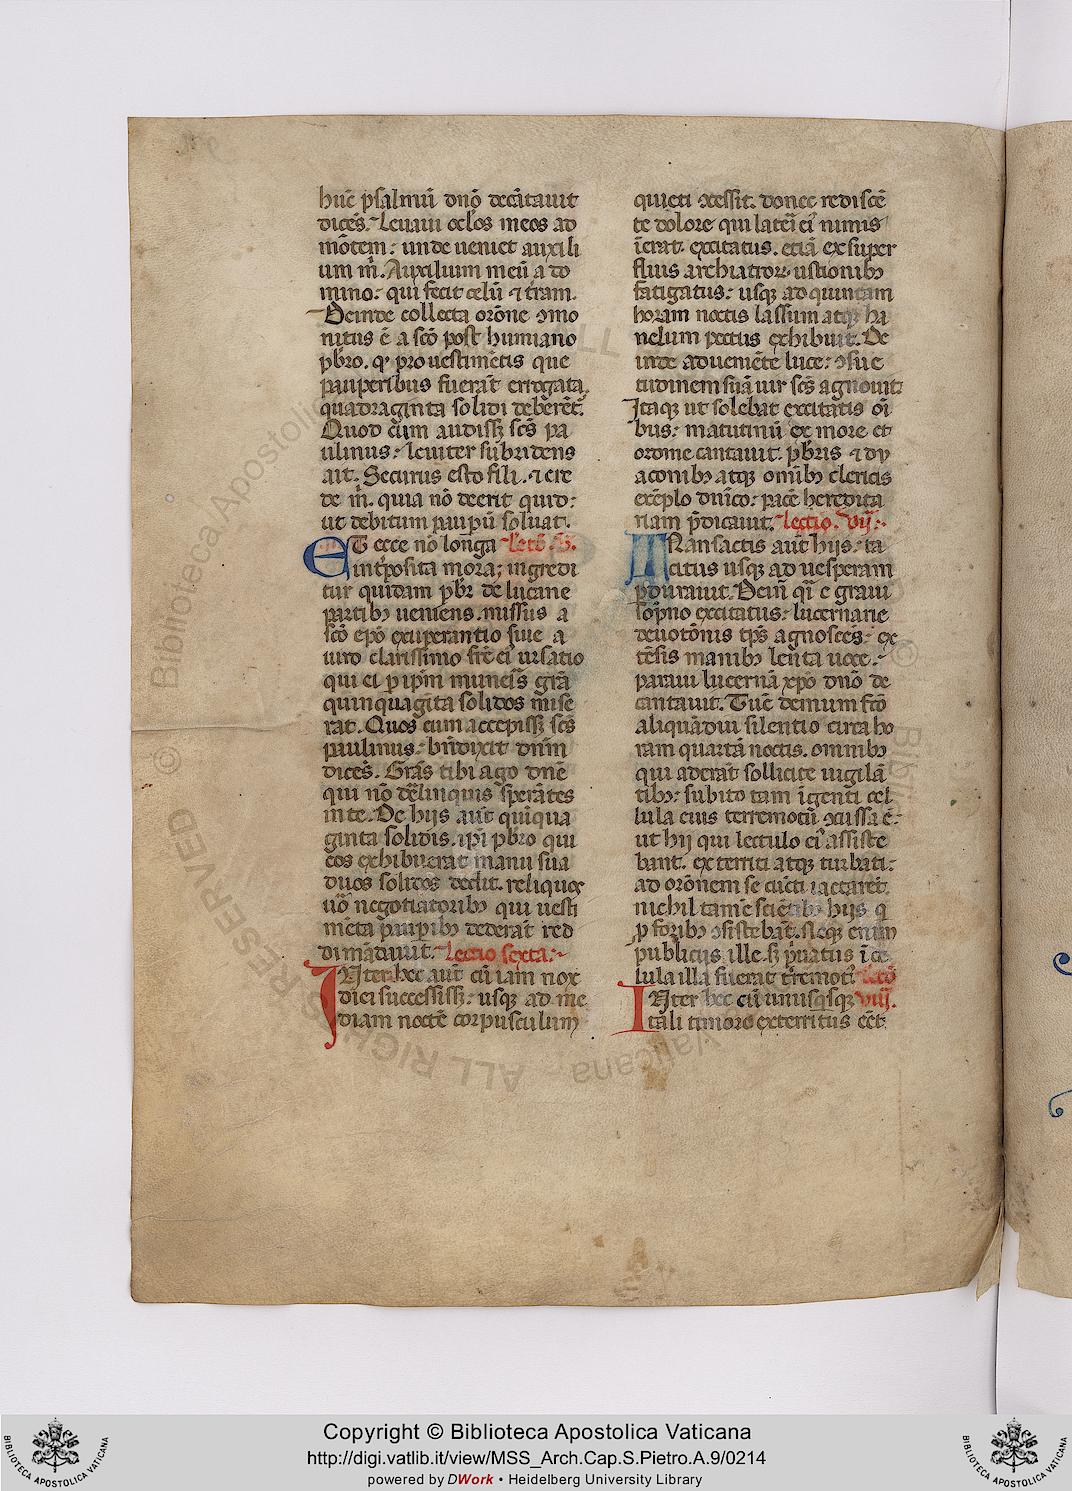 hūc psalmū dn̄o decātauit
dicēs. Leuaui oclos meos ad
mōtem: unde ueniet auxili
um m̄. Auxilium meū a do
mino: qui fecit celū ⁊ trām.
Deinde collecta orōne ꝯmo
nitus ē a sc̄o post humiano
p̄bro. ꝙ pro uestimētis que
pauperibus fuerāt errogata
quadraginta solidi deberēt.
Quod cum audissꝫ sc̄s pa
ulinus: leuiter subridens
ait. Securus esto fili. ⁊ cre
de m̄. quia nō deerit quid:
ut debitum paupū soluat.
ET ecce nō longa Lectō V.
int̄posita mora; ingredi
tur quidam p̄br de lucane
partibꝫ ueniens. missus a
sc̄o ep̄o exuperantio siue a
uiro clarissimo fr̄e ei ursatio
qui ei p ip̄m muneris grā
quinquagīta solidos mise
rat. Quos cum accepissꝫ sc̄s
paulinus: bn̄dixit dn̄m
dicēs. Grās tibi ago dn̄e
qui nō dēlinquis sperātes
in te. De hiis aūt quīqua
ginta solidis. ip̄i p̄bro qui
eos exhibuerat manu sua
duos solidos dedit. reliquos
uō negotiatoribꝫ qui uesti
mēta paupibꝫ dederāt red
di mādauit. Lectio sexta:
INter hec aūt cū iam nox
diei successissꝫ: usqꝫ ad me
diam noctē corpusculum
quieti ꝯcessit. donec rediscē
te dolore qui lateri ei nimis
īerat. excitatus. etiā ex super
fluis archiatroꝝ ustionibꝫ
fatigatus: usqꝫ ad quintam
horam noctis lassum atqꝫ ha
nelum pectus exhibuit. De
inde adueniēte luce: ꝯsue
tudinem suā uir sc̄s agnouit
Itaqꝫ ut solebat excitatis oī
bus: matutinū ex more et
ordine cantauit. p̄bris ⁊ dy
aconibꝫ atqꝫ omībꝫ clericis
exēplo dn̄ico: pacē heredita
riam p̄dicauit. Lectio. vij:
TRansactis aūt hiis: ta
citus usqꝫ ad uesperam
pdurauit. Dein q̄i e graui
sopno excitatus: lucernarie
deuotōnis tp̄s agnoscēs: ex
tēsis manibꝫ lenta uoce:
paraui lucernā xp̄o dn̄o de
cantauit. Tūc demum fc̄o
aliquādiu silentio circa ho
ram quartā noctis. omnibꝫ
qui aderāt sollicite uigilā
tibꝫ: subito tam īgenti cel
lula eius terremotu ꝯcussa ē:
ut hij qui lectulo ei assiste
bant. exterriti atqꝫ turbati:
ad orōnem se cūcti iactaret.
nichil tamē sciētibꝫ hiis q
p foribꝫ ꝯsistebāt. Neqꝫ enim
publicus ille. sꝫ p̄uatus ī ce
lula illa fuerat t̄remot. Lectō
INter hec cū unusqisqꝫ viij.
tali timore exterritus eēt
Copyright © Biblioteca Apostolica Vaticana
http://digi.vatlib.it/view/MSS_Arch.Cap.S.Pietro.A.9/0214
powered by DWork • Heidelberg University Library